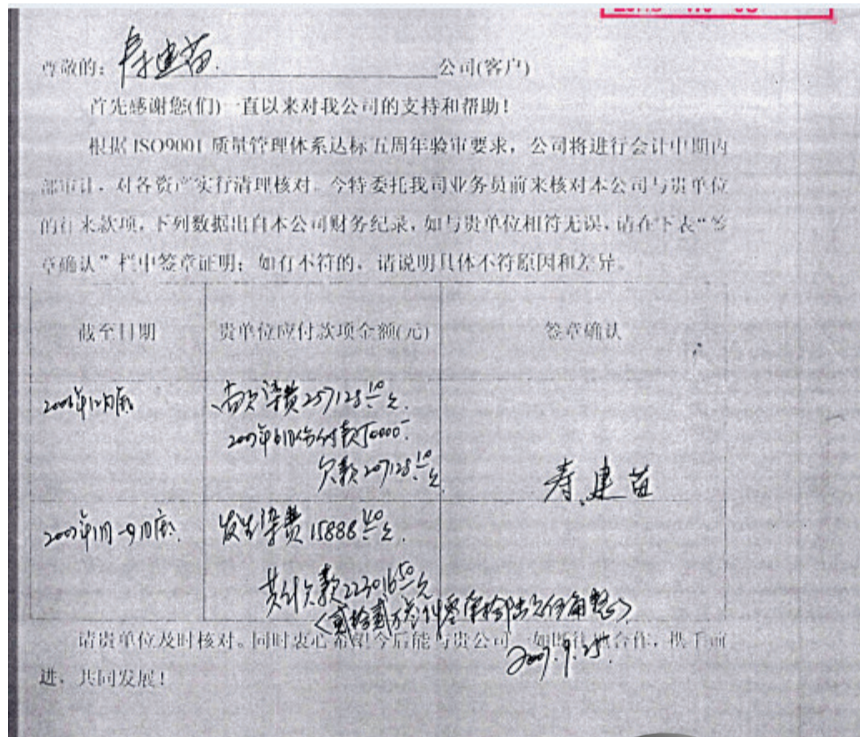 尊敬的: 寿建苗. 公司(客户)
首先感谢您(们)一直以来对我公司的支持和帮助!
根据 ISO9001 质量管理体系达标五周年验审要求，公司将进行会计中期内
部审计，对各资产实行清理核对。今特委托我司业务员前来核对本公司与贵单位
的往来款项，下列数据出自本公司财务纪录，如与贵单位相符无误，请在下表“签
章确认”栏中签章证明；如有不符的，请说明具体不符原因和差异。
截至日期 贵单位应付款项金额(元) 签章确认
2006年12月底 尚欠染费257128.10元.
2007年6月份付款50000-
欠款207128.10元
寿建苗
2007年1月-9月底. 发生染费15888.40元.
共计欠款223016.50元
<贰拾贰万叁仟零壹拾陆元伍角整>
请贵单位及时核对。同时衷心希望今后能与贵公司一如既往地合作，携手前
2007.9.25.
进，共同发展!